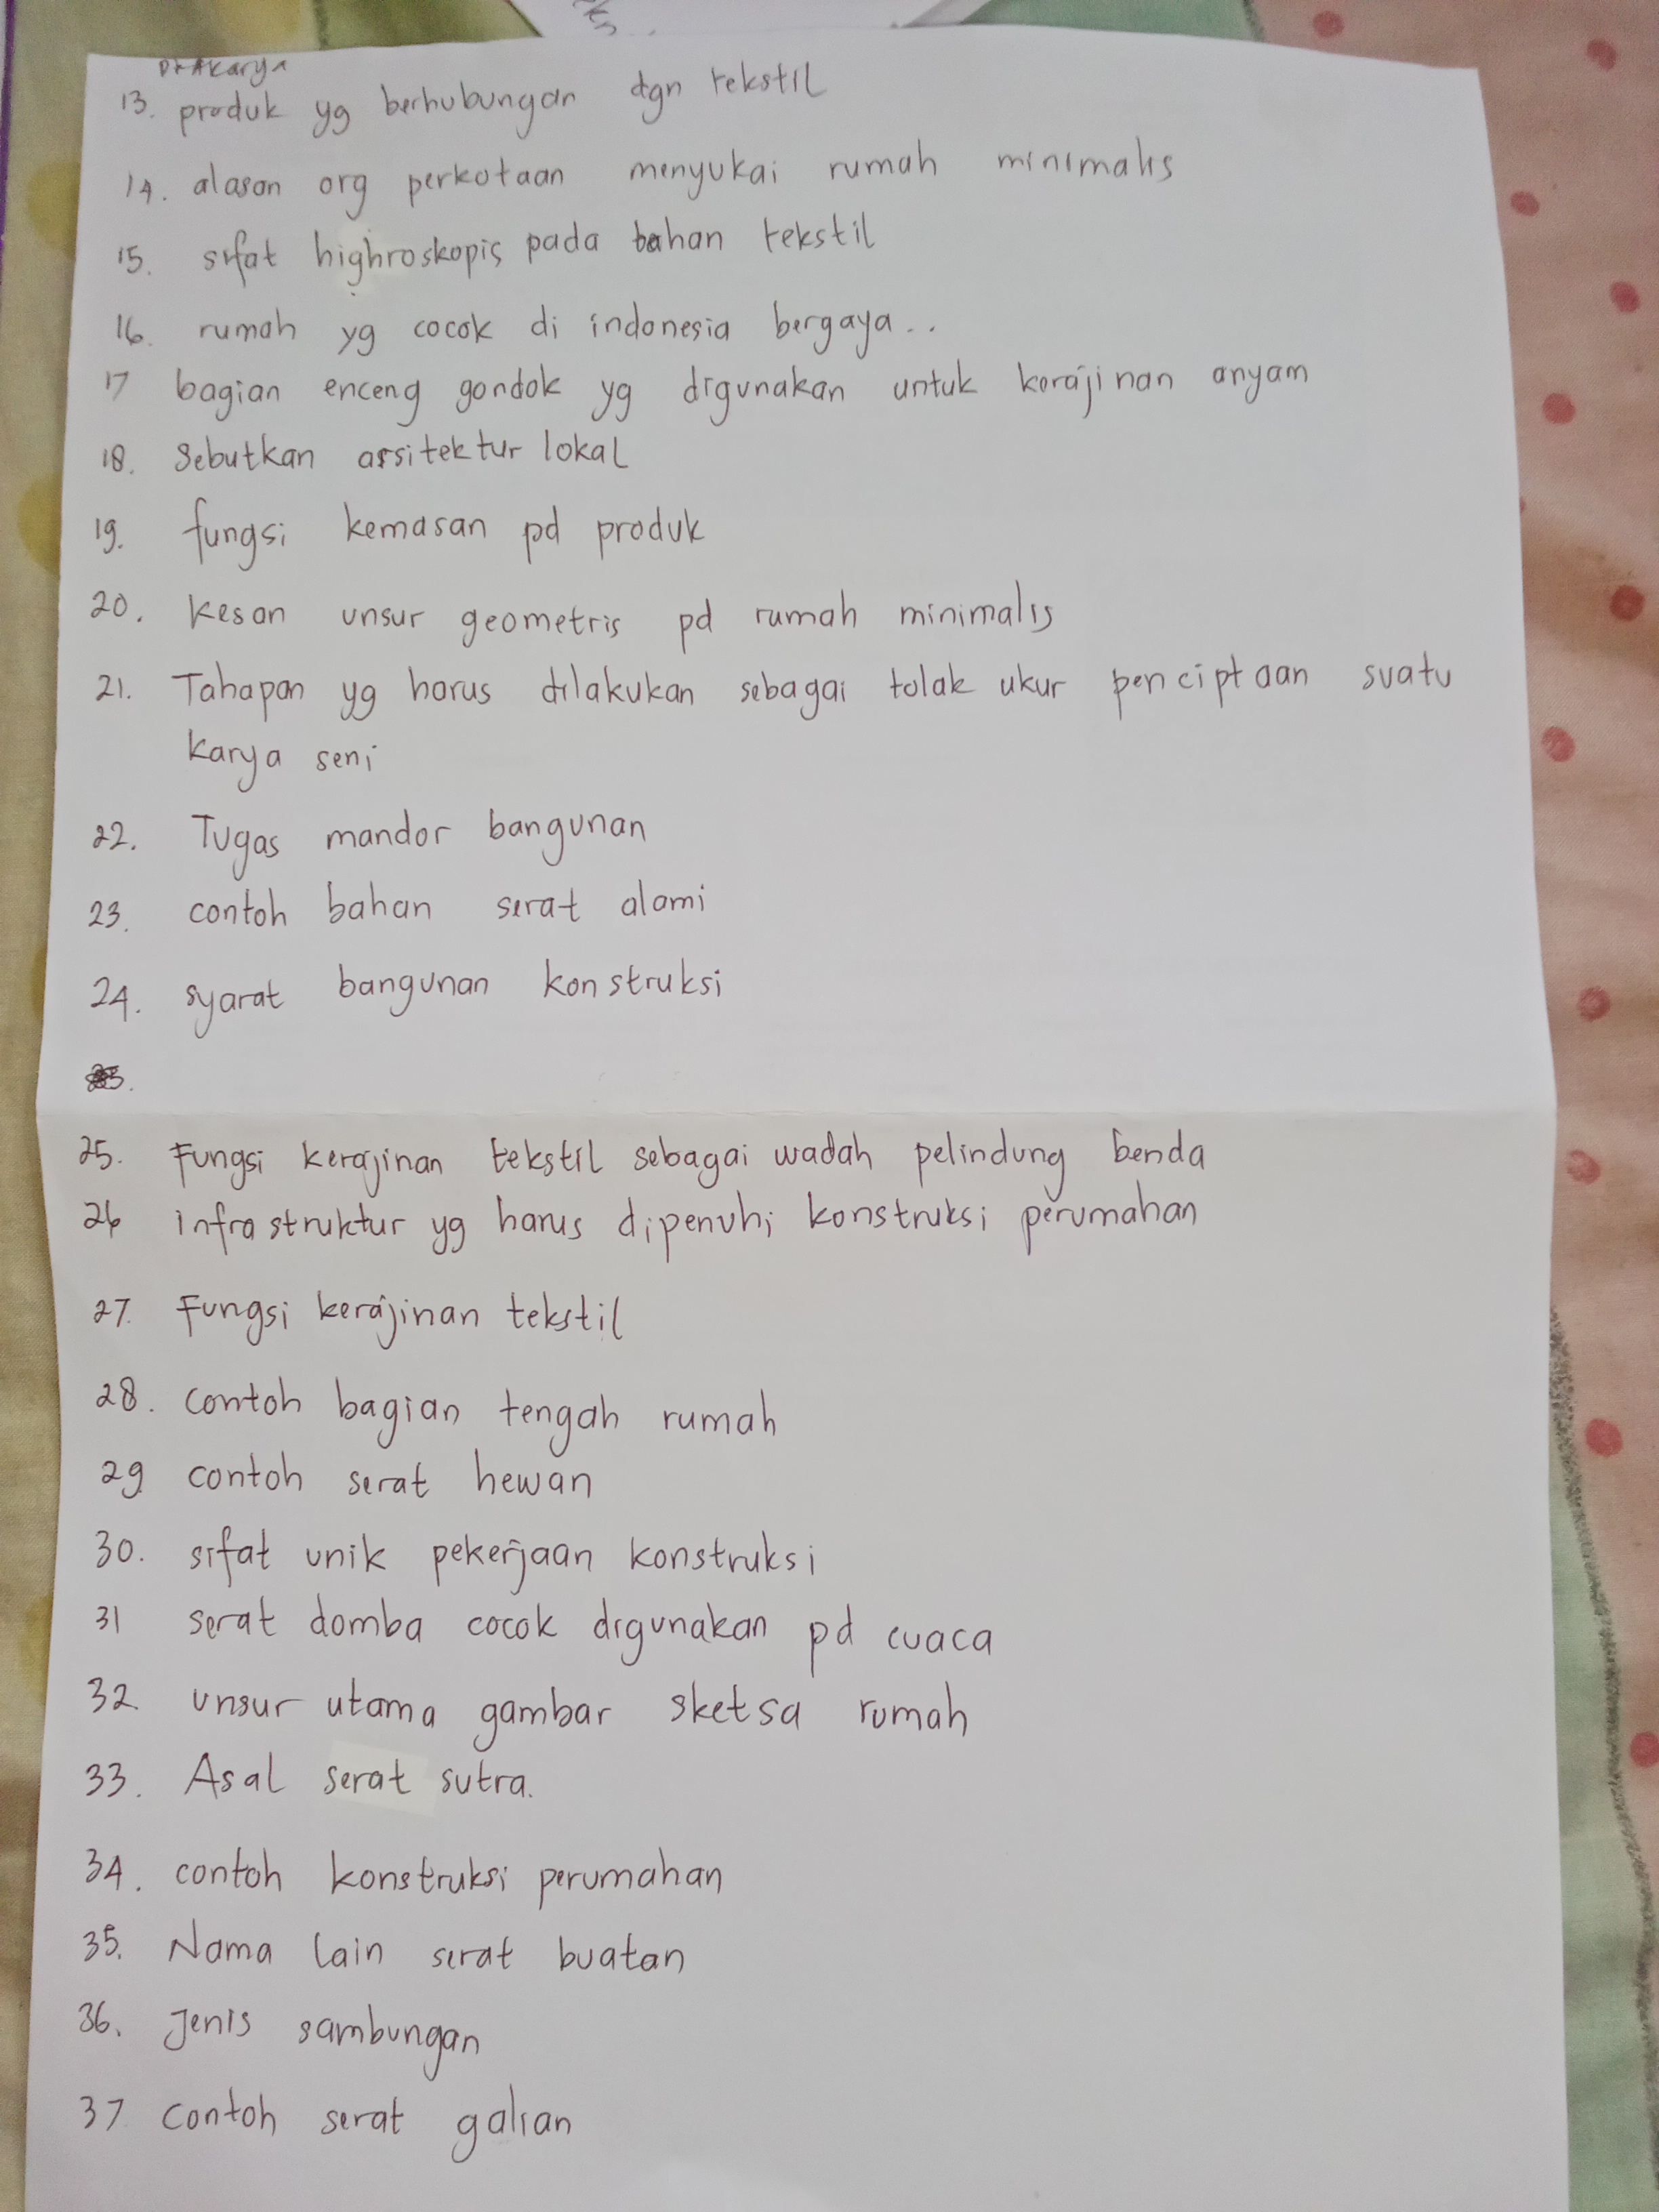 Prakarya
13. produk yg berhubungan dgn tekstil
14. alasan org perkotaan menyukai rumah minimalis
15. sifat highroskopis pada bahan tekstil
16. rumah yg cocok di indonesia bergaya..
17 bagian enceng gondok yg digunakan untuk kerajinan anyam
18. Sebutkan arsitektur lokal
19. fungsi kemasan pd produk
20. Kesan unsur geometris pd rumah minimalis
21. Tahapan yg harus dilakukan sebagai tolak ukur penciptaan suatu
karya seni
22. Tugas mandor bangunan
23. contoh bahan serat alami
24. syarat bangunan konstruksi
25. Fungsi kerajinan tekstil sebagai wadah pelindung benda
26 infrastruktur yg harus dipenuhi konstruksi perumahan
27. Fungsi kerajinan tekstil
28. contoh bagian tengah rumah
29 contoh serat hewan
30. sifat unik pekerjaan konstruksi
31 serat domba cocok digunakan pd cuaca
32. unsur utama gambar sketsa rumah
33. Asal serat sutra.
34. contoh konstruksi perumahan
35. Nama lain serat buatan
36. Jenis sambungan
37 contoh serat galian